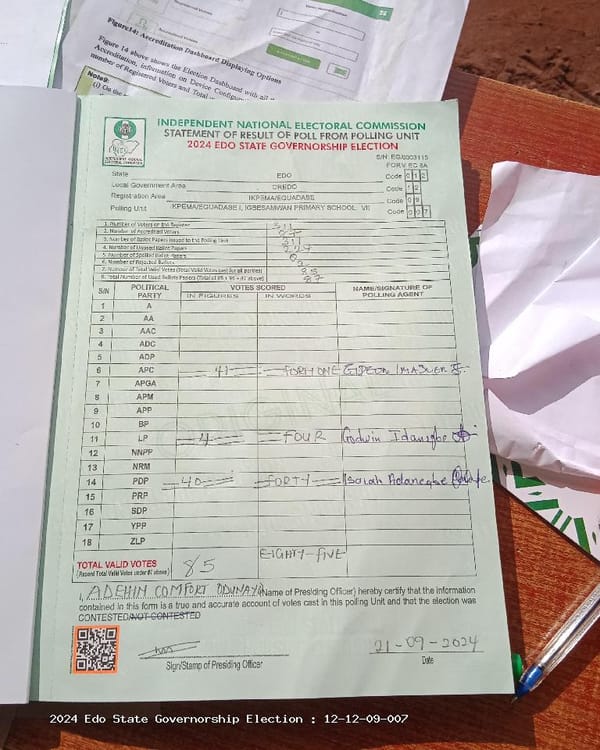 Figure14: Accreditation Dashboard Displaying Options
Figure 14 above shows the Election Dashboard with all
Accreditation, information on Device
number of Registered Voters and Total
Notes:
(i) On the
INDEPENDENT NATIONAL ELECTORAL COMMISSION
STATEMENT OF RESULT OF POLL FROM POLLING UNIT
2024 EDO STATE GOVERNORSHIP ELECTION
FORM EC 8A
State EDO Code 012
Local Government Area OREDO Code 12
Registration Area IKPEMA/EGUADASE Code 09
Polling Unit KPEMA/EGUADASE I, IGBESAMWAN PRIMARY SCHOOL VII Code 007
1. Number of Voters on the Register
2. Number of Accredited Voters 87
3. Number of Ballot Papers Issued to the Polling Unit
4. Number of Unused Ballot Papers
5. Number of Spoiled Ballot Papers
6. Number of Rejected Ballots
7. Number of Total Valid Votes (Total Valid Votes cast for all parties) 85
8. Total Number of Used Ballot Papers 87
S/N POLITICAL PARTY VOTES SCORED NAME/SIGNATURE OF POLLING AGENT
IN FIGURES IN WORDS
1 A
2 AA
3 AAC
4 ADC
5 ADP
6 APC 41 FORTY ONE
7 APGA
8 APM
9 APP
10 BP
11 LP 4 FOUR Godwin
12 NNPP
13 NRM
14 PDP 40 FORTY Isaiah
15 PRP
16 SDP
17 YPP
18 ZLP
TOTAL VALID VOTES 85 EIGHTY-FIVE
I, ADEHIN COMFORT ODUNAYO (Name of Presiding Officer) hereby certify that the information
contained in this form is a true and accurate account of votes cast in this polling Unit and that the election was
CONTESTED/NOT CONTESTED
21-09-2024
Sign/Stamp of Presiding Officer Date
2024 Edo State Governorship Election : 12-12-09-007